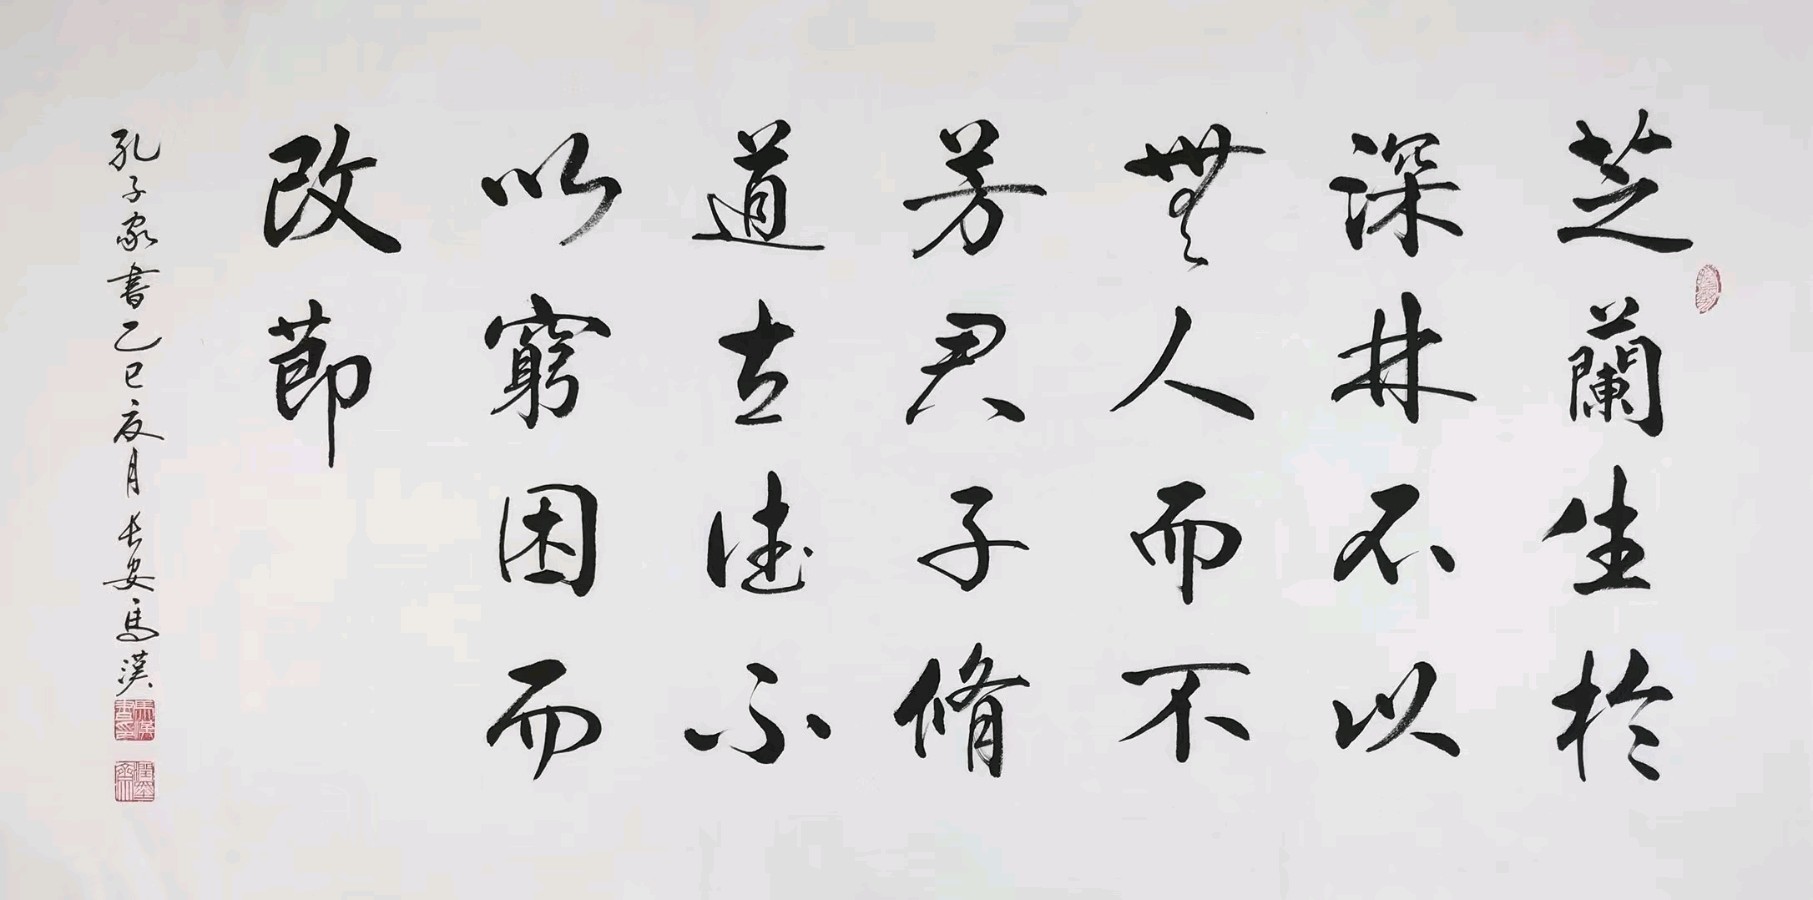 芝蘭生於
深林不以
無人而不
芳君子脩
道立德不
以窮困而
改節
孔子家書乙巳夏月長安馬漢